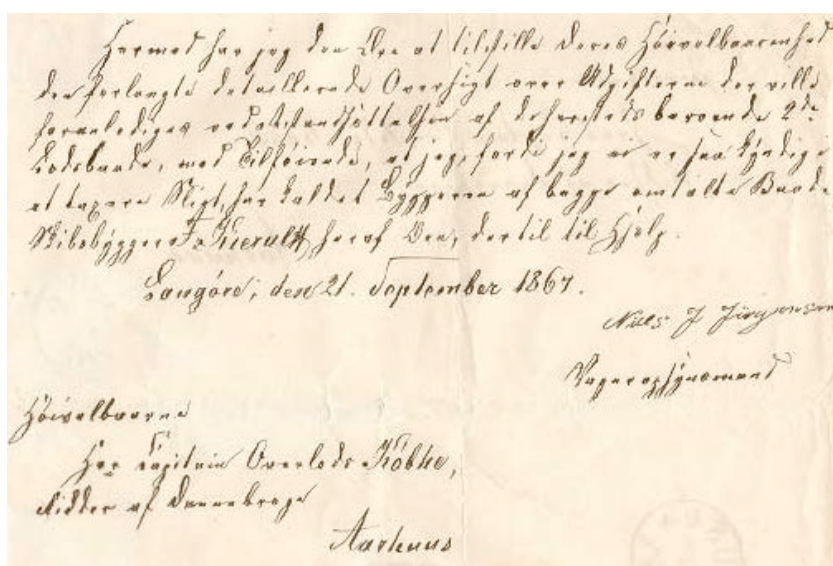 Hermed har jeg den Ære at tilstille Deres Höivelbaarenhed
den forlangte detaillerede Oversigt over Udgifterne der ville
foranlediges ved Istandsættelsen af de herstedsberoende 2de
Lodsbaade, med Tilføiende, at jeg, fordi jeg ei er saa kyndig i
at taxere Sligt, har kaldet Byggeren af begge omtalte Baade
Skibsbygger Kierulff heraf Øen, dertil til Hjelp.
Langöre, den 21. September 1867.
Niels J Jürgensen
Vageropsynsmand
Höivelbaarne
Herr Capitain Overlods Köbke,
Ridder af Dannebroge
Aarhuus